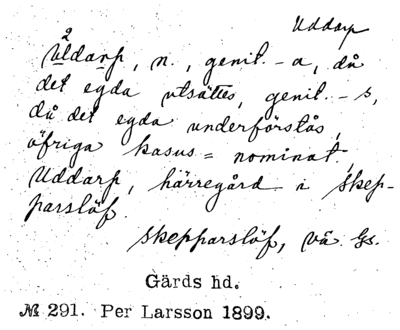 Uddarp
Uldarp, n., genit. - a, då
det egda utsättes, genit. - s,
då det egda underförstås,
öfriga kasus = nominat.
Uddarp, härregård i Skep-
parslöf
Skepparslöf, Vä Gs.
Gärds hd.
№ 291. Per Larsson 1899.